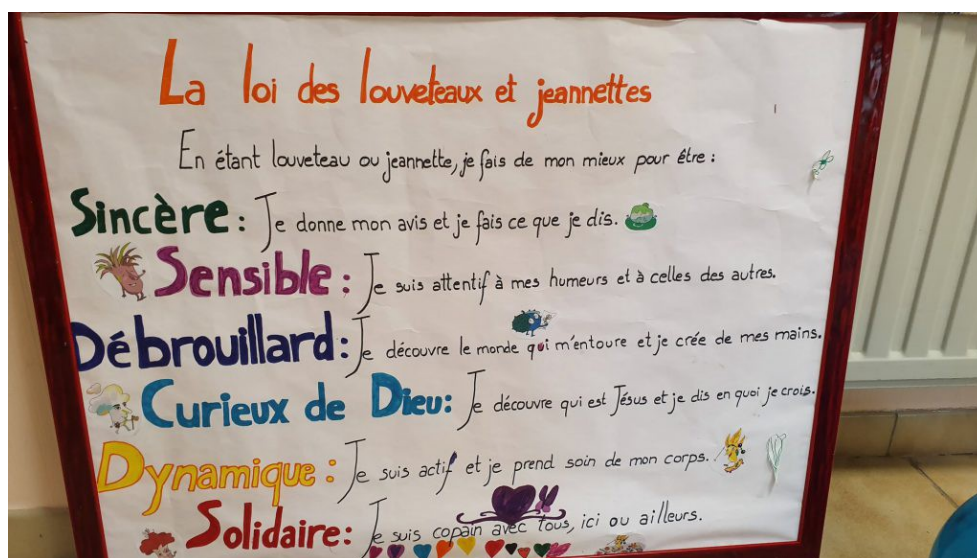 La loi des louveteaux et jeannettes
En étant louveteau ou jeannette, je fais de mon mieux pour être :
Sincère : Je donne mon avis et je fais ce que je dis.
Sensible : Je suis attentif à mes humeurs et à celles des autres.
Débrouillard : Je découvre le monde qui m'entoure et je crée de mes mains.
Curieux de Dieu : Je découvre qui est Jésus et je dis en quoi je crois.
Dynamique : Je suis actif et je prend soin de mon corps.
Solidaire : Je suis copain avec tous, ici ou ailleurs.